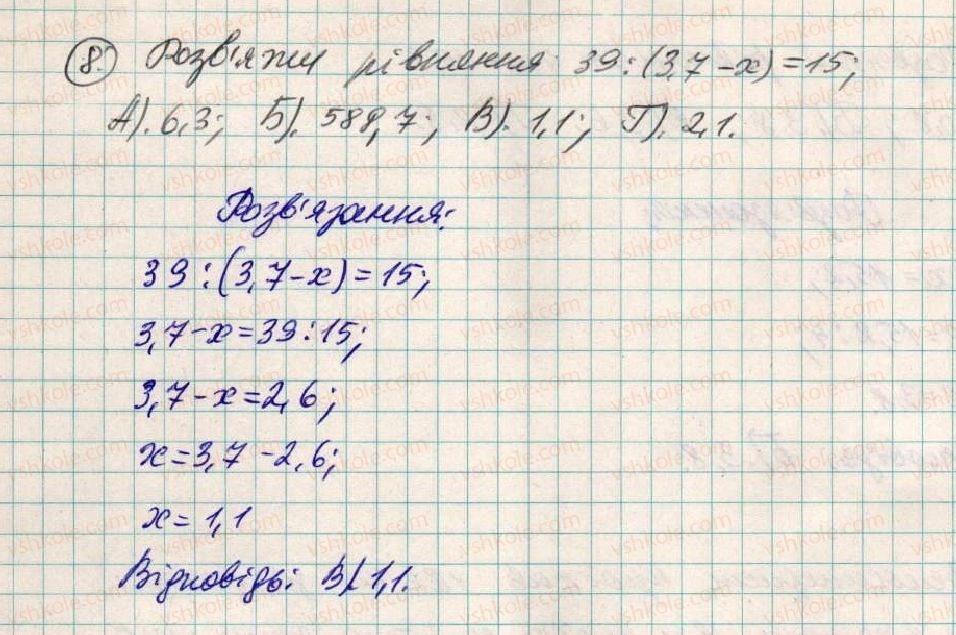 8. Розв'яжи рівняння: 39:(3,7-х)=15;
А). 6,3; Б). 588,7; В). 1,1; Г). 2,1.
Розв'язання:
39:(3,7-х)=15;
3,7-х=39:15;
3,7-х=2,6;
х=3,7-2,6;
х=1,1
Відповідь: В) 1,1.